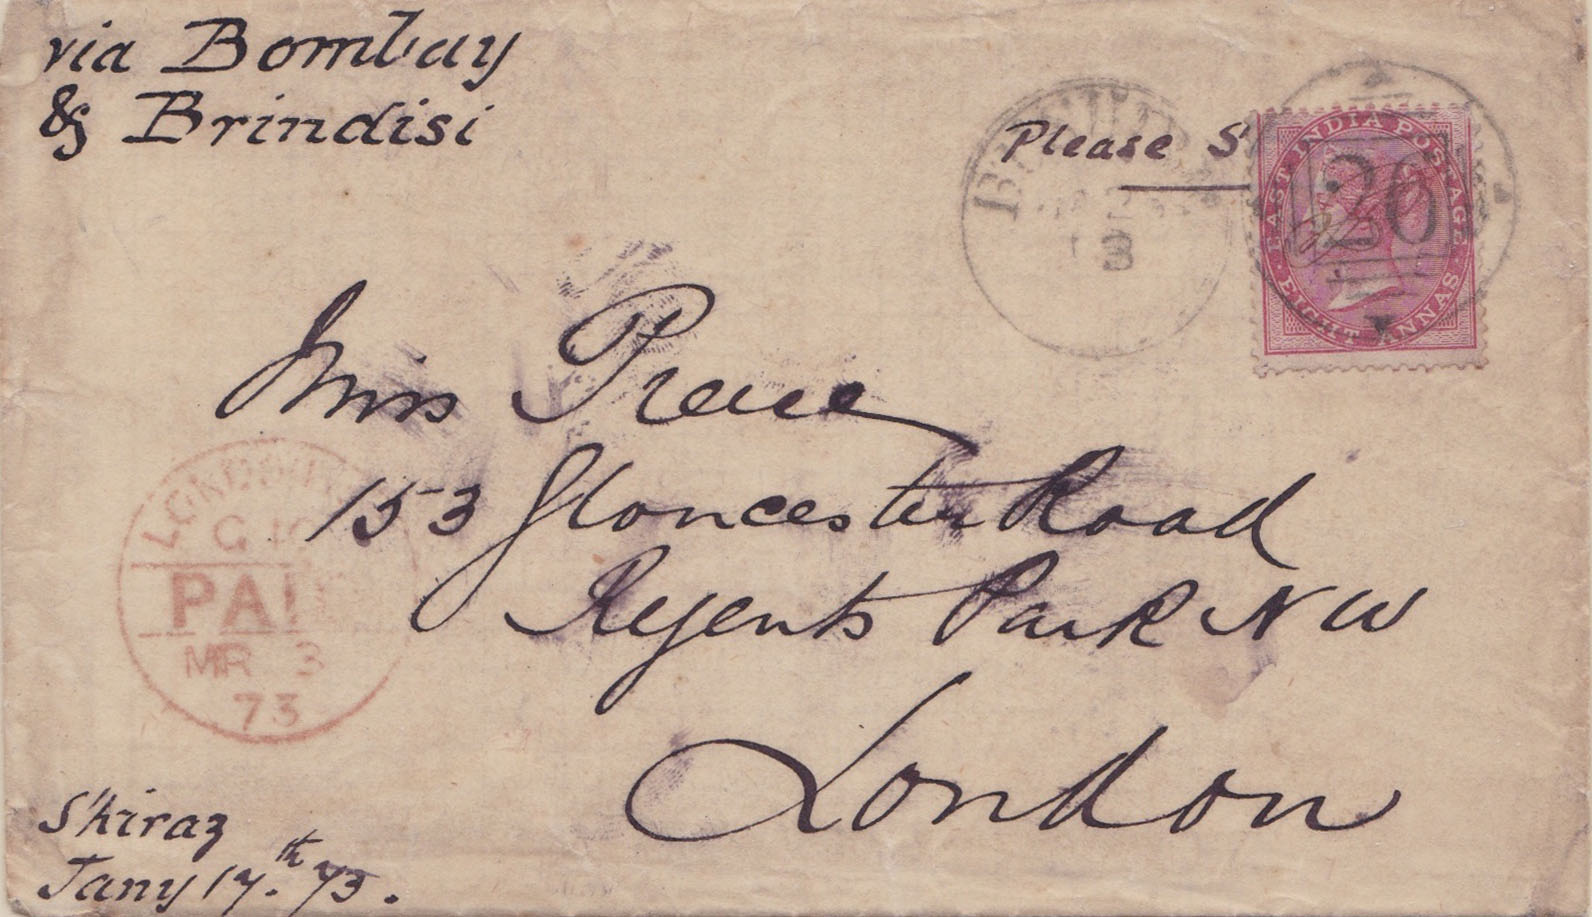 via Bombay
& Brindisi
Please S
EAST INDIA POSTAGE
26
EIGHT ANNAS
3
Miss
153 Gloucester Road
Regents Park N W
London
PAI
MR 3
73
Shiraz
Jany 17.th 73.